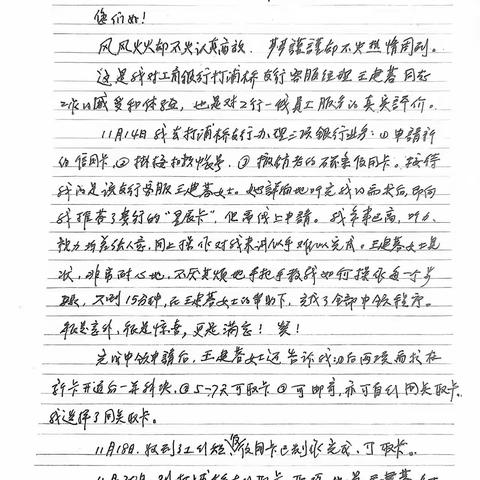 您们好!
风风火火却不失认真高效,步步谨谨却不失热情周到。
这是我对工商银行打浦桥支行客服经理王建蓉同志
工作的感受和体验,也是对工行一线员工服务的真实评价。
11月14日我去打浦桥支行办理三项银行业务:①申请新
的信用卡,②挂接扣款账号,③撤销老的 信用卡。接待
我的是该支行客服王建蓉女士。她静静地听完我的要求后,即向
我推荐了贵行的“星辰卡”,但需线上申请。我年事已高,听力、
视力均差给人家,网上操作对我来讲似乎难以完成。王建蓉女士是
次,非常耐心地,不厌其烦地手把手教我如何操作每一个步
骤,不到15分钟,在王建蓉女士的帮助下,完成了全部申领程序。
很是意外,很是惊喜,更是满意!赞!
完成申领申请后,王建蓉女士还告诉我以后两项需求在
新卡开通后一并解决,①5-7天可取卡②可邮寄,亦可自到网点取卡。
我选择了网点取卡。
11月18日,收到了工行短信信用卡已制作完成,可取卡。